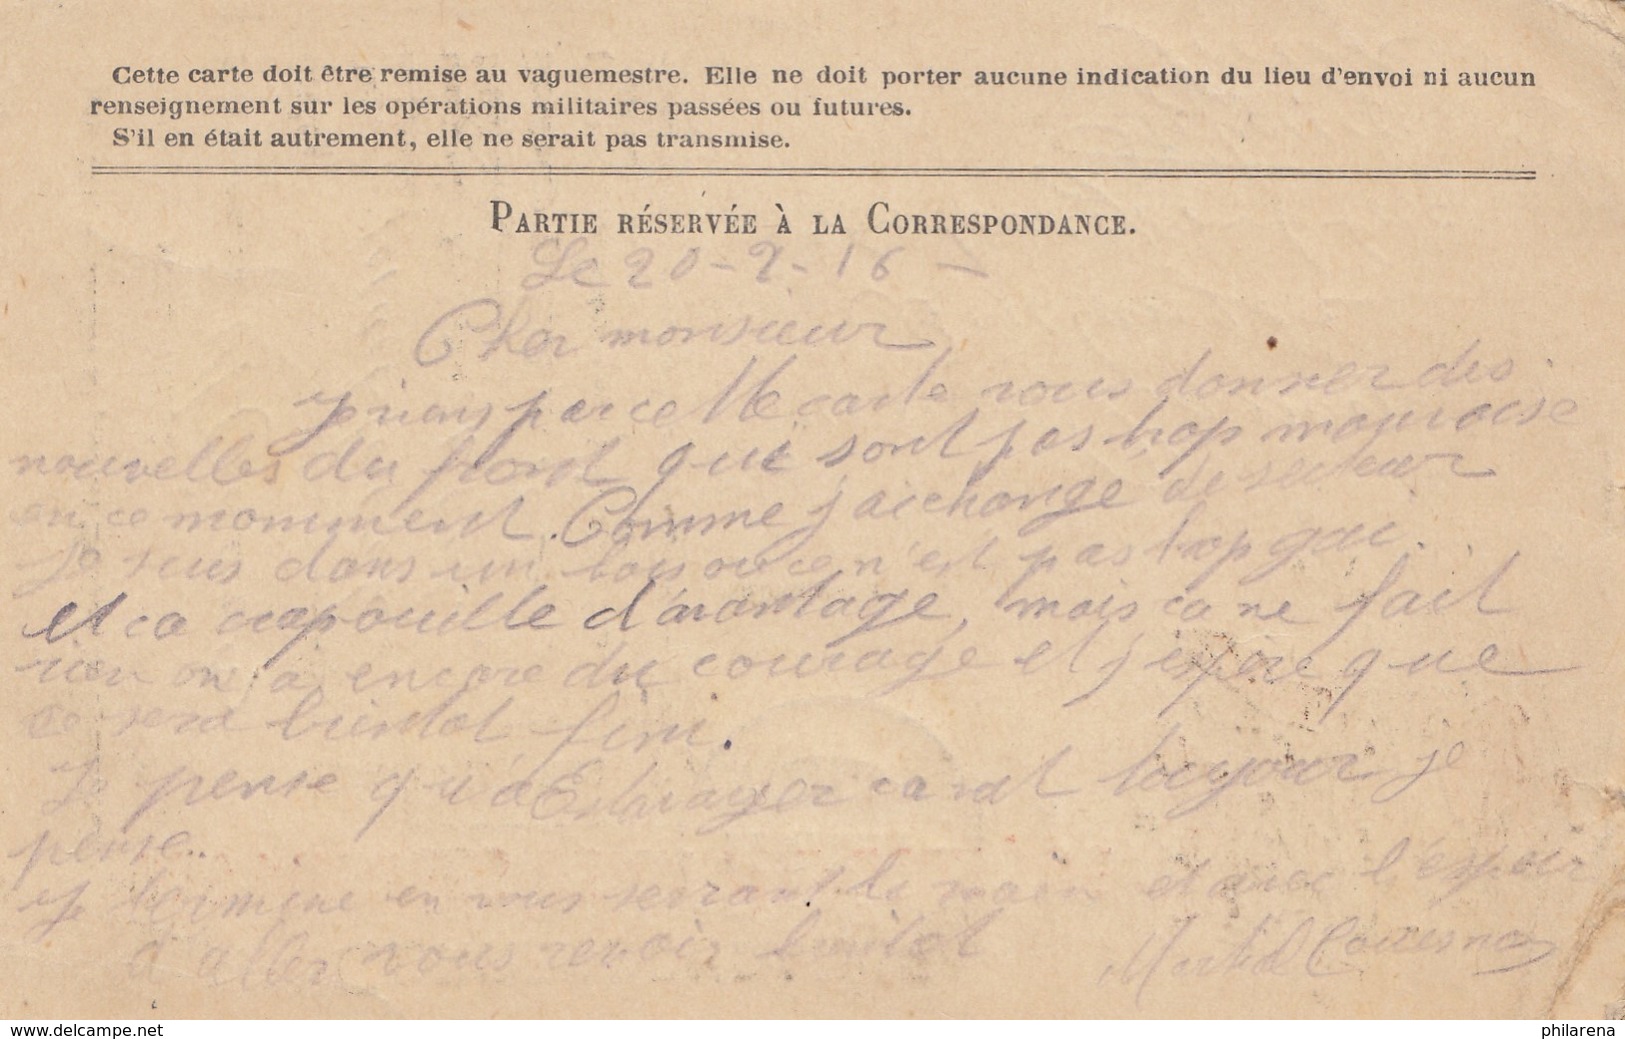 Cette carte doit être remise au vaguemestre. Elle ne doit porter aucune indication du lieu d'envoi ni aucun
renseignement sur les opérations militaires passées ou futures.
S'il en était autrement, elle ne serait pas transmise.
PARTIE RÉSERVÉE À LA CORRESPONDANCE.
Le 20-2-16 -
Cher monsieur
Je viens par cette carte vous donner des
nouvelles du front qui sont pas trop mauvaise
en ce momment. Comme j'ai change de secteur
je suis dans un bois ou ce n'est pas trop gai.
et ca crapouille d'avantage, mais ca ne fait
rien on a encore du courage et j'espere que
ce sera bientot fini.
Je pense qu'a ca vat toujour je
pense..
Je termine en vous serrant la main et avec l'espoir
d'aller vous revoir bientot
Martial
www.delcampe.net
philarena